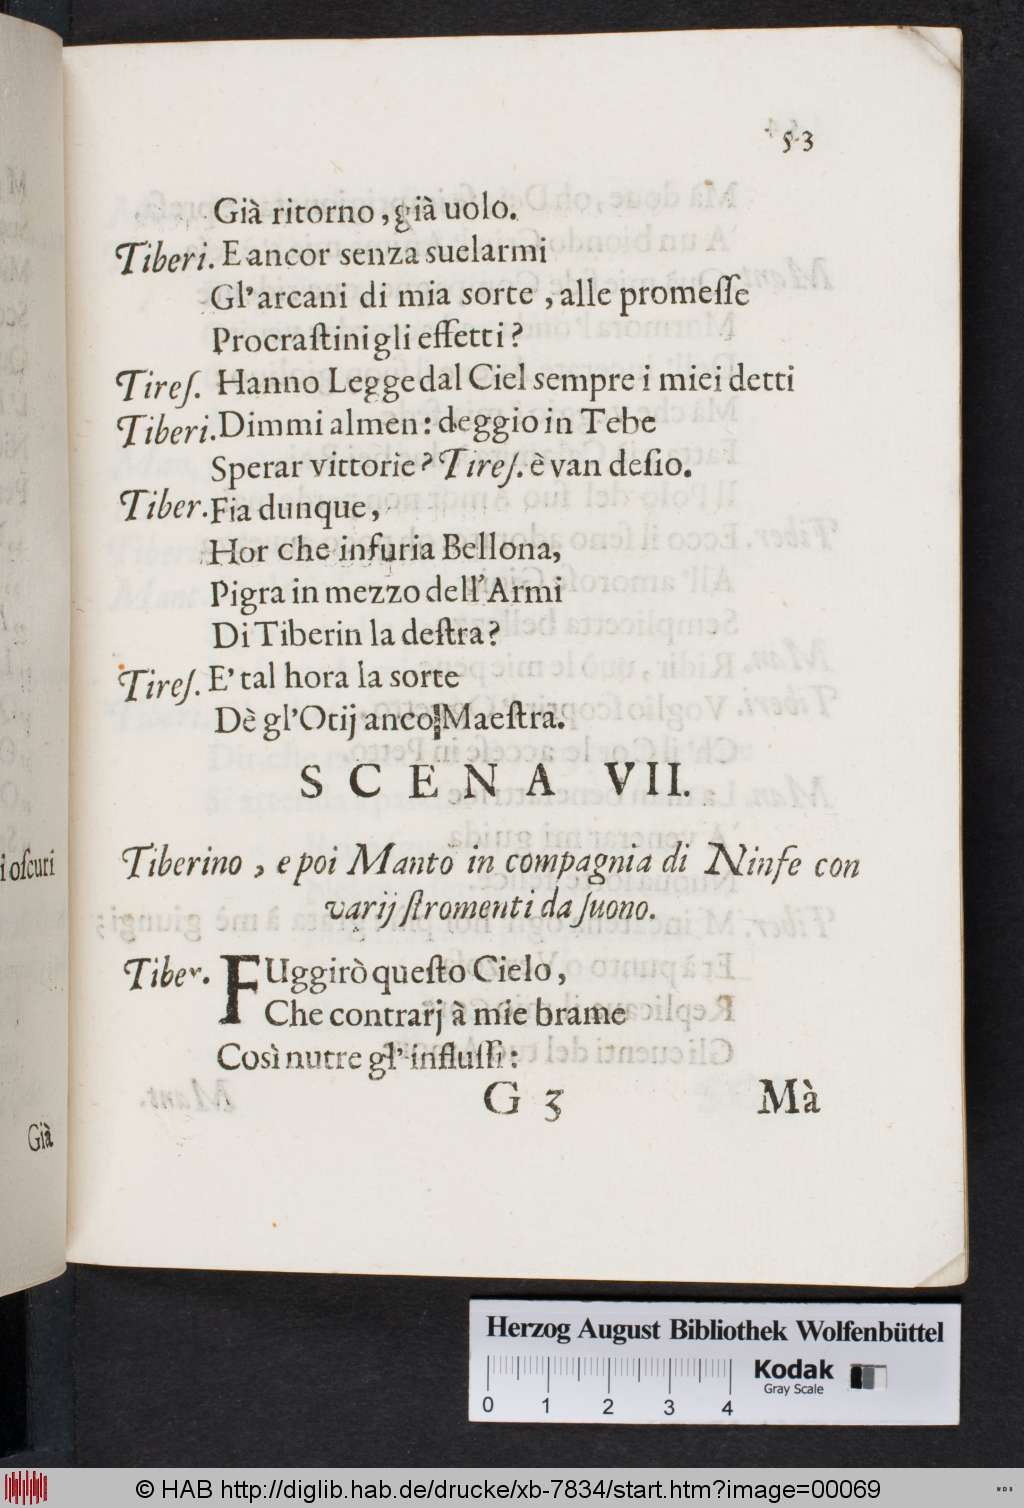 53
Già ritorno, già uolo.
Tiberi. E ancor senza suelarmi
Gl'arcani di mia sorte, alle promeſſe
Procraſtini gli effetti?
Tireſ. Hanno Legge dal Ciel sempre i miei detti
Tiberi. Dimmi almen: deggio in Tebe
Sperar vittorie? Tireſ. è van deſio.
Tiber. Fia dunque,
Hor che infuria Bellona,
Pigra in mezzo dell'Armi
Di Tiberin la deſtra?
Tireſ. E' tal hora la sorte
Dè gl'Otij anco Maeſtra.
SCENA VII.
Tiberino, e poi Manto in compagnia di Ninfe con
varij ſtromenti da ſuono.
Tiber. FUggirò queſto Cielo,
Che contrarj à mie brame
Così nutre gl' influſſi:
G 3 Mà
i oſcuri
Già
Herzog August Bibliothek Wolfenbüttel
Kodak
Gray Scale
0 1 2 3 4
© HAB http://diglib.hab.de/drucke/xb-7834/start.htm?image=00069